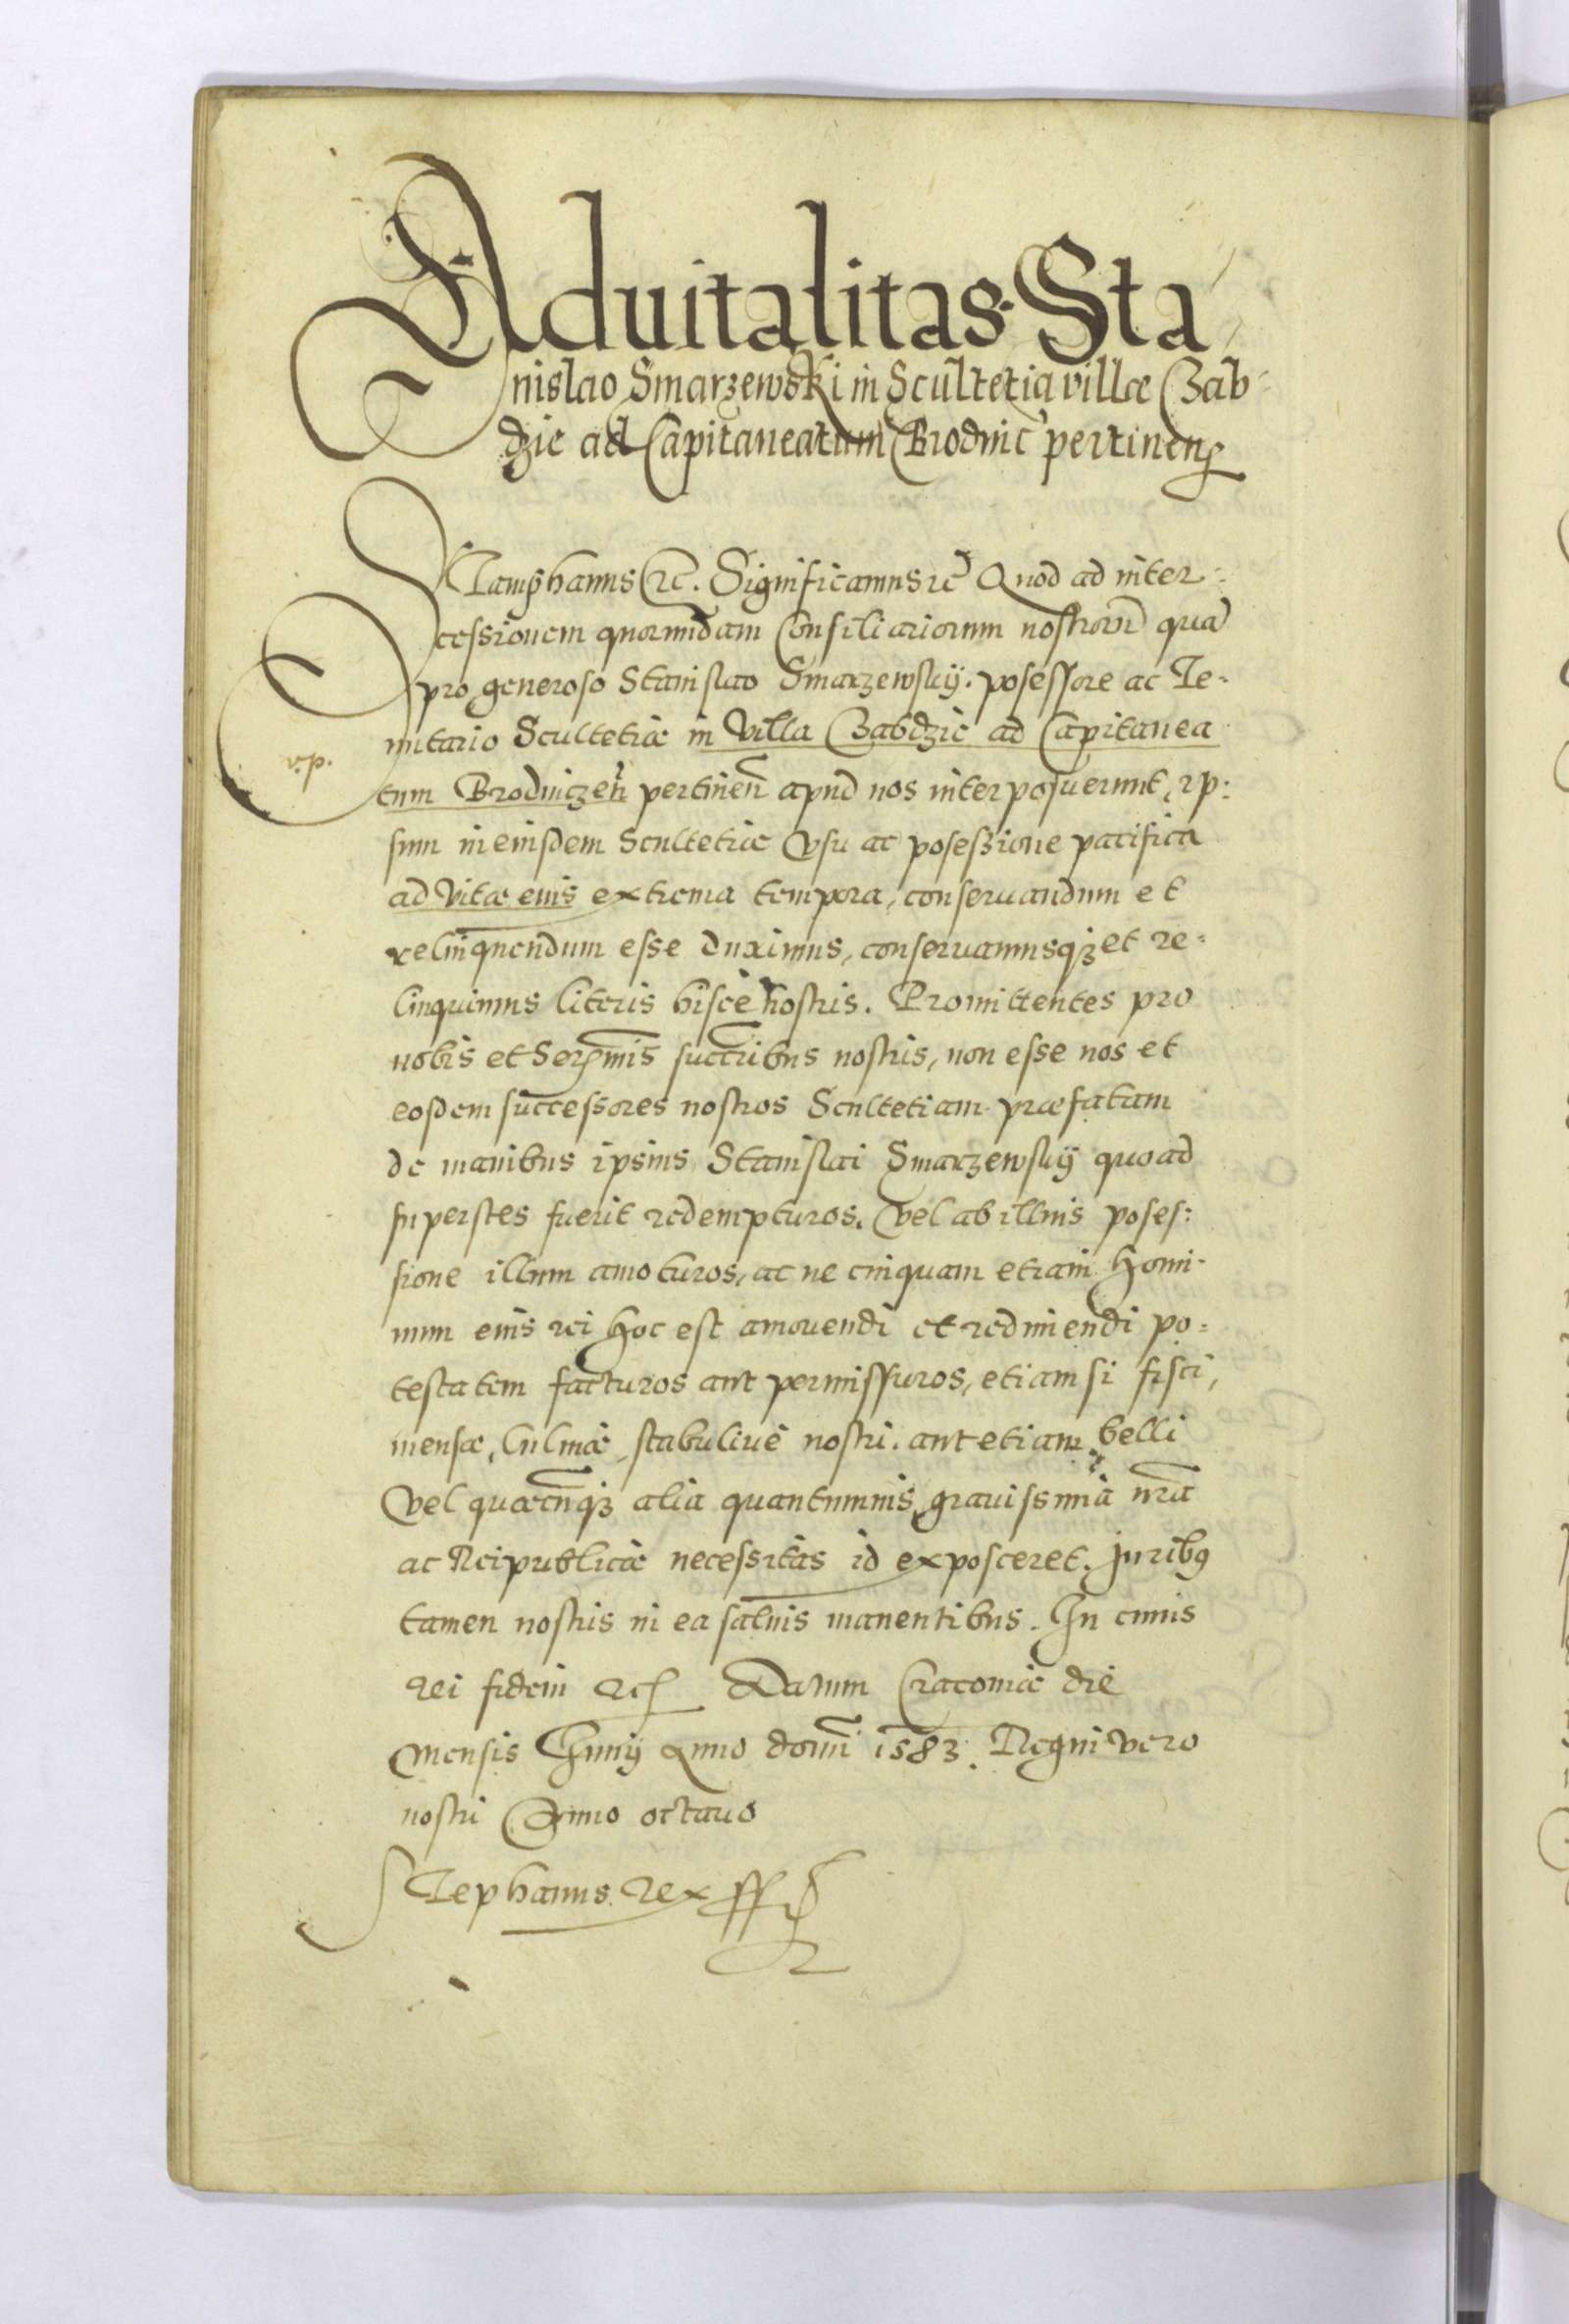 Aduitalitas Sta
nislao Smarzewski in Scultetia villæ Czab
dzic ad Capitaneatum Brodnic pertinens
Stamphanus etc. Significamus etc Quod ad inter-
cessionem quorundam Consiliariorum nostrorum qua
pro generoso Stanislao Smarzewskij. posessore ac Te-
nutario Scultetiæ in Villa Czabdzic ad Capitanea
v.p.
tum Brodniczen pertinen apud nos interposuerunt, ip:
sum in eiusdem Scultetiæ Vsu ac posessione pacifica
ad Vitæ eius extrema tempora, conseruandum et
relinquendum esse duximus, conseruamusqz et re-
linquimus literis hisce nostris. Promittentes pro
nobis et Serenmis succribus nostris, non esse nos et
eosdem successores nostros Scultetiam præfatam
de manibus ipsius Stanislai Smarzewskij quoad
superstes fuerit redempturos. Vel ab illius poses:
sione illum amoturos, ac ne cuiquam etiam homi-
num eius rei hoc est amouendi et redimendi po=
testatem facturos aut permissuros, etiam si fisci,
mensæ, culinæ, stabuliue nostri. aut etiam belli
Vel quæcunqz alia quantumuis grauissima nra
ac Reipublicæ necessitas id exposceret. Juribus
tamen nostris in ea saluis manentibus. In cuius
rei fidem etc Datum Cracouiæ die
mensis Junij Anno domi 1583. Regni vero
nostri Anno octauo
Stephanus Rex sst